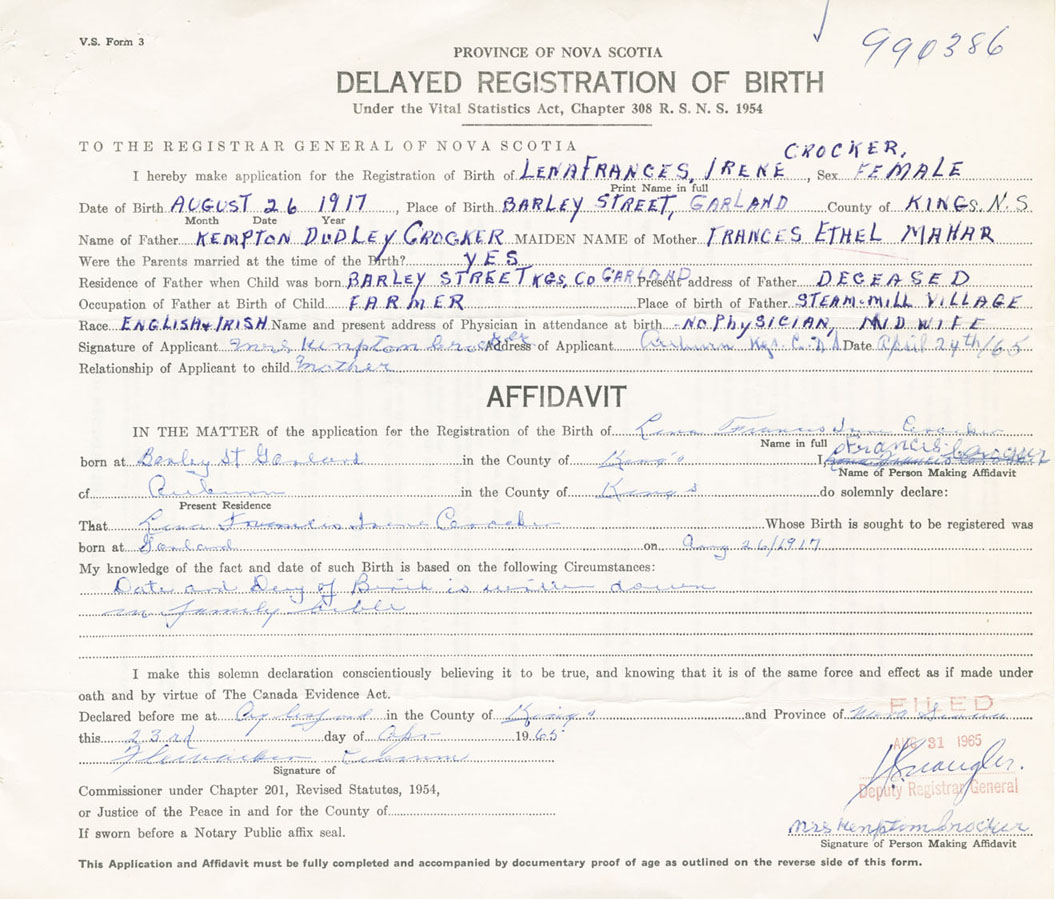 V.S. Form 3
990386
PROVINCE OF NOVA SCOTIA
DELAYED REGISTRATION OF BIRTH
Under the Vital Statistics Act, Chapter 308 R. S. N. S. 1954
TO THE REGISTRAR GENERAL OF NOVA SCOTIA
CROCKER,
I hereby make application for the Registration of Birth of LENA FRANCES, IRENE, Sex FEMALE
Print Name in full
Date of Birth AUGUST 26 1917, Place of Birth BARLEY STREET, GARLAND County of KINGS. N.S.
Month Date Year
Name of Father KEMPTON DUDLEY CROCKER MAIDEN NAME of Mother FRANCES ETHEL MAHAR
Were the Parents married at the time of the Birth? YES
Residence of Father when Child was born BARLEY STREET KGS. CO GARLAND Present address of Father DECEASED
Occupation of Father at Birth of Child FARMER Place of birth of Father STEAM-MILL VILLAGE
Race ENGLISH + IRISH Name and present address of Physician in attendance at birth - NO PHYSICIAN, MIDWIFE
Signature of Applicant Mrs Kemptom Crocker Address of Applicant Auburn Kgs. C. Date April 24th/65
Relationship of Applicant to child Mother
AFFIDAVIT
IN THE MATTER of the application for the Registration of the Birth of Lena Frances Irene Crocker
Name in full Frances Crocker
born at Barley St Garland in the County of King's I,
Name of Person Making Affidavit
of Auburn in the County of King's do solemnly declare:
Present Residence
That Lena Frances Irene Crocker Whose Birth is sought to be registered was
born at Garland on Aug 26/1917
My knowledge of the fact and date of such Birth is based on the following Circumstances:
Date and Day of Birth is written down
in family bible
I make this solemn declaration conscientiously believing it to be true, and knowing that it is of the same force and effect as if made under
oath and by virtue of The Canada Evidence Act.
Declared before me at Aylesford in the County of King's and Province of Nova Scotia
FILED
this 23rd day of Apr 1965
AUG 31 1965
Signature of
Deputy Registrar General
Commissioner under Chapter 201, Revised Statutes, 1954,
or Justice of the Peace in and for the County of
Mrs Kemptom Crocker
If sworn before a Notary Public affix seal.
Signature of Person Making Affidavit
This Application and Affidavit must be fully completed and accompanied by documentary proof of age as outlined on the reverse side of this form.